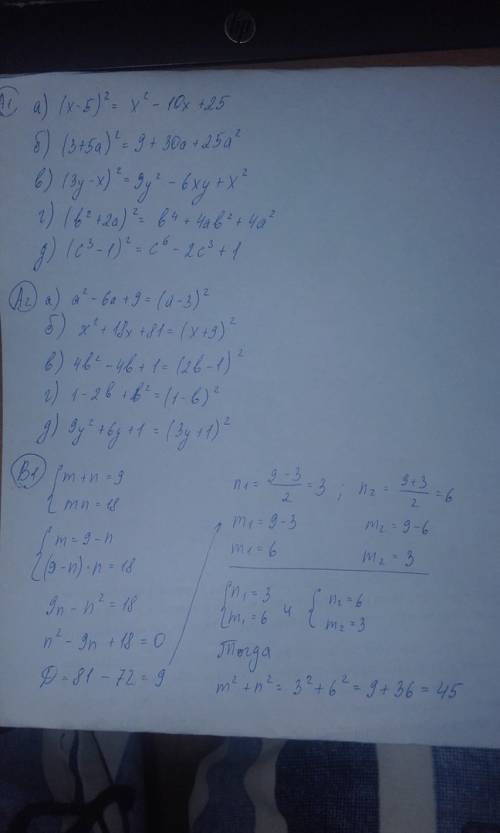 hp
А1 а) (x-5)² = x² - 10x + 25
б) (3+5a)² = 9 + 30a + 25a²
в) (3y-x)² = 9y² - 6xy + x²
г) (b²+2a)² = b⁴ + 4ab² + 4a²
д) (c³-1)² = c⁶ - 2c³ + 1
А2 а) a² - 6a + 9 = (a-3)²
б) x² + 18x + 81 = (x+9)²
в) 4b² - 4b + 1 = (2b-1)²
г) 1 - 2b + b² = (1-b)²
д) 9y² + 6y + 1 = (3y+1)²
В1 { m+n = 9
mn = 18
{ m = 9-n
(9-n)·n = 18
9n - n² = 18
n² - 9n + 18 = 0
D = 81 - 72 = 9
n1 = (9-3)/2 = 3 ; n2 = (9+3)/2 = 6
m1 = 9-3 m2 = 9-6
m1 = 6 m2 = 3
{ n1 = 3 и { n2 = 6
m1 = 6 m2 = 3
Тогда
m² + n² = 3² + 6² = 9 + 36 = 45